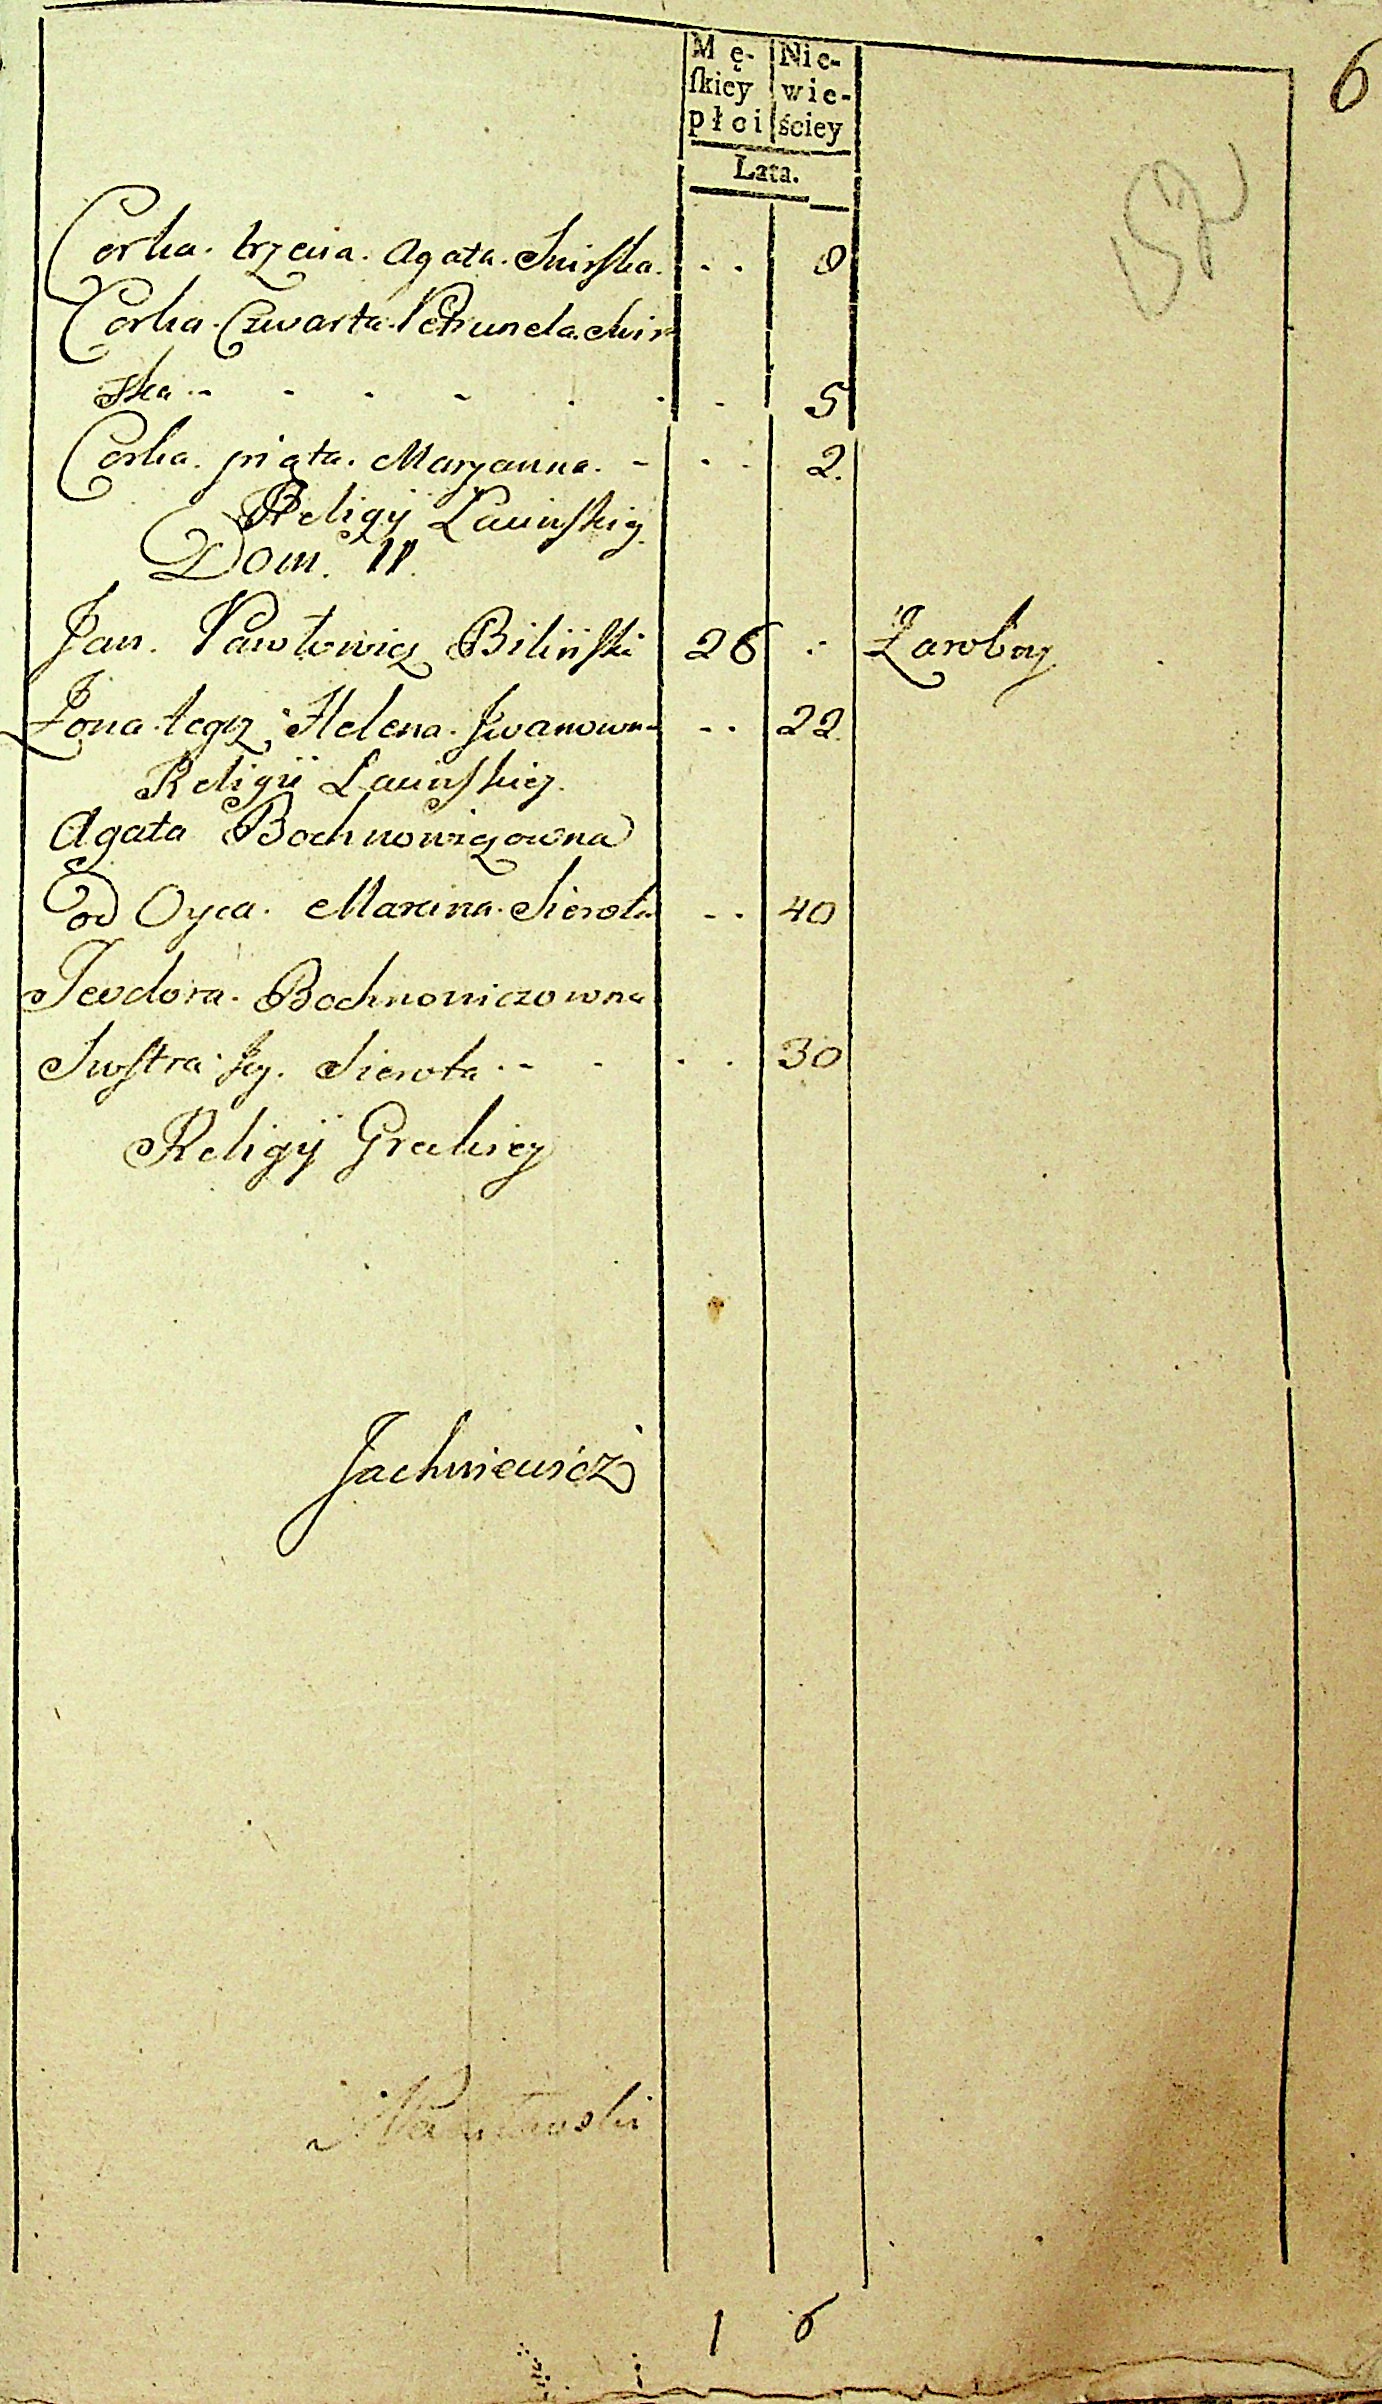 6
52
Mę- Nie-
ſkiey wie-
płci ściey
Lata.
Corka. trzecia. Agata. Snirſka. . . 8
Corka. Czwarta. Petrunela. Snir
ſka - - - - . . . 5
Corka. piąta. Maryanna. - . . 2.
Religij Łacinſkiey.
Dom. 11.
Jan. Pawłowicz Bilinſki 26 . Zarobny
Zona. tegoz. Helena. Jwanowna . . 22.
Religii Łacinſkiey.
Agata Bochnowiczowna
od Oyca. Marcina. Sierota . . 40
Teodora. Bochnowiczowna
Siostra Jey. Sierota . - - . . 30
Religij Greckiey
Jachniewicz
1 6